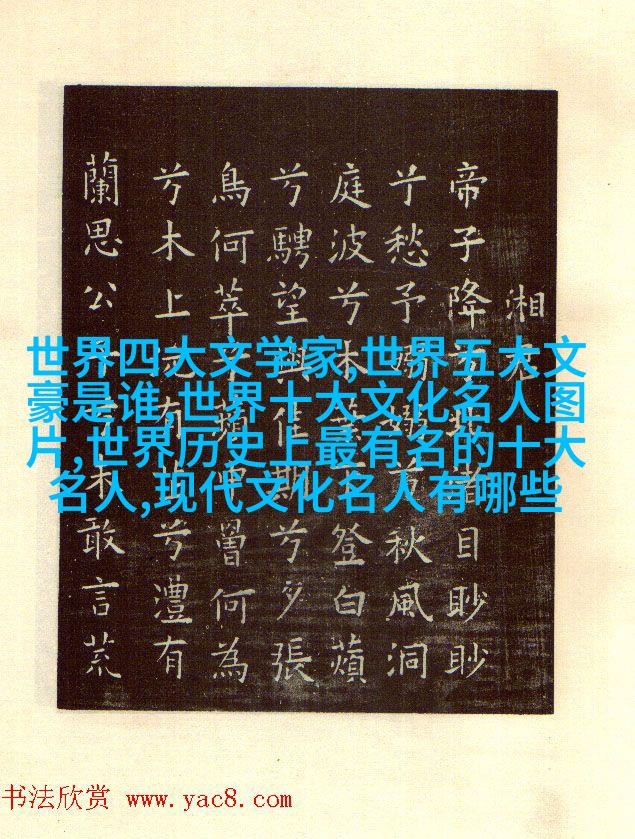 湘
帝子降兮北渚目眇眇
兮愁予嫋嫋兮秋風洞
庭波兮木葉下登白蘋
兮騁望與佳期兮夕張
鳥何萃兮蘋中罾何為
兮木上沅有芷兮澧有
蘭思公子兮未敢言荒
世界四大文学家,世界五大文
豪是谁,世界十大文化名人图
片,世界历史上最有名的十大
名人,现代文化名人有哪些
书法欣赏 www.yac8.com